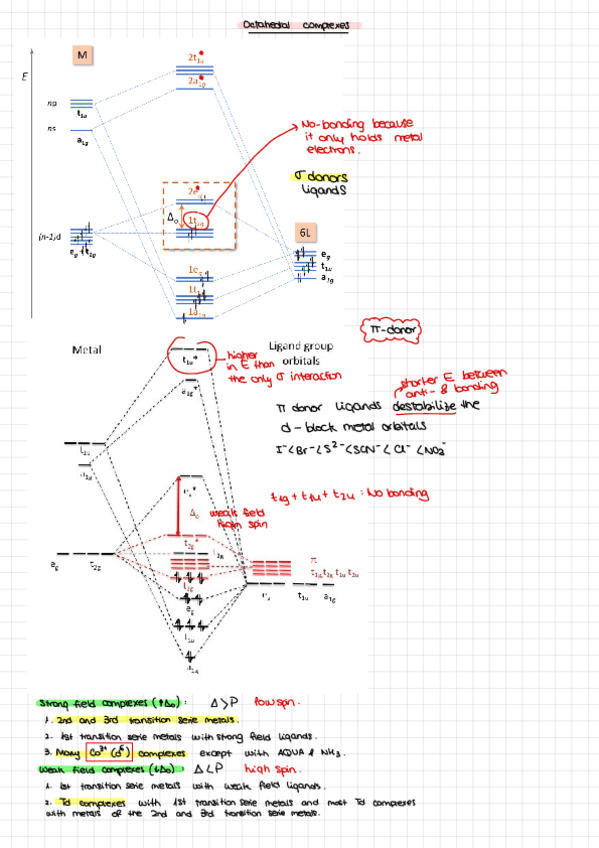 Octahedral complexes
M
E
2t1u*
2a1g*
np
t1u
ns
a1g
No-bonding because
it only holds metal
electrons.
σ donors
ligands
2eg*
Δo
1t2g
(n-1)d
eg + t2g
6L
eg
t1u
a1g
1eg
1t1u
1a1g
π-donor
Metal
Ligand group
orbitals
t1u*
higher
in E than
the only σ interaction
a1g*
shorter E between
anti- & bonding
π donor ligands destabilize the
d-block metal orbitals
I⁻<Br⁻<S²⁻<SCN⁻<Cl⁻<NO2⁻
t1u
a1g
eg*
t1g + t1u + t2u : No bonding
Δo weak field
high spin
t2g*
eg t2g
π
t1g t2g t1u t2u
t2g
eg t1u a1g
eg
t1u
a1g
Strong field complexes (↑Δo): Δ>P low spin.
1. 2nd and 3rd transition serie metals.
2. 1st transition serie metals with strong field ligands.
3. Many Co³⁺ (d⁶) complexes except with AQUA & NH3.
Weak field complexes (↓Δo) Δ<P high spin.
1. 1st transition serie metals with weak field ligands.
2. Td complexes with 1st transition serie metals and most Td complexes
with metals of the 2nd and 3rd transition serie metals.